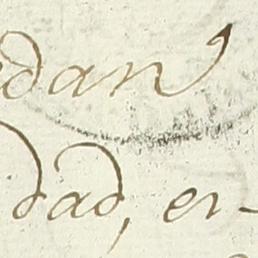 edan
dad, en